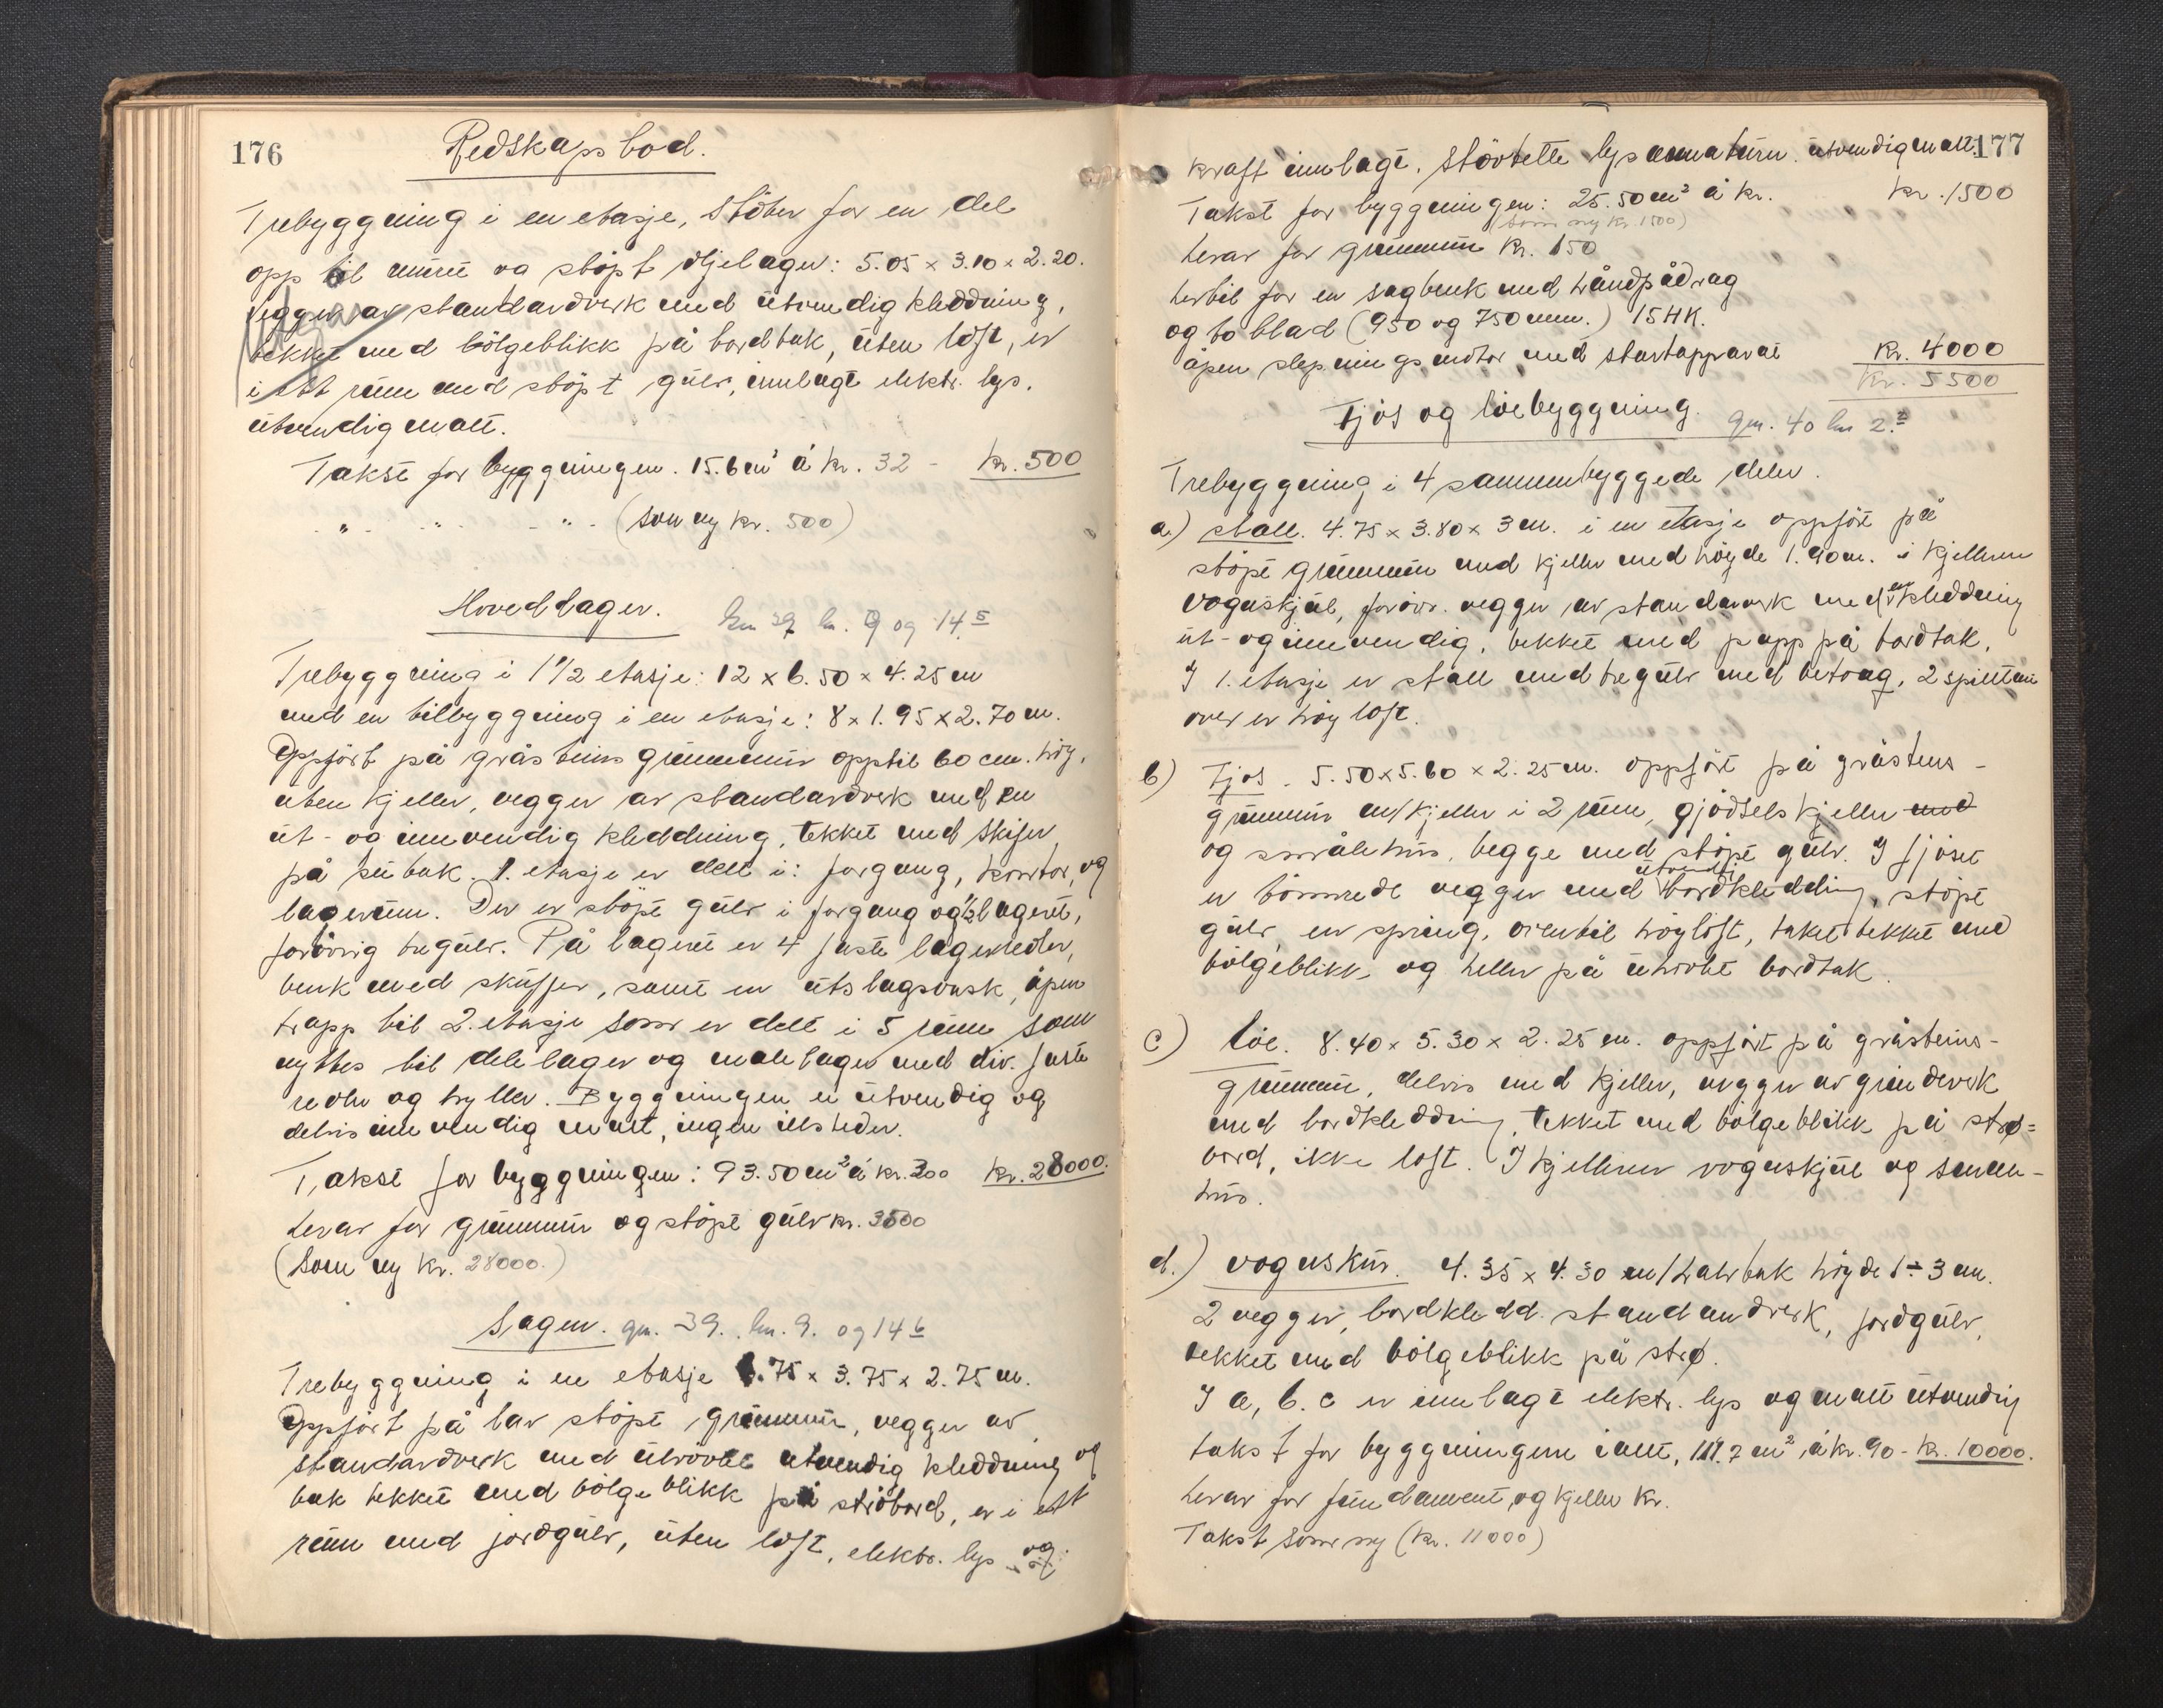 176
Redskapsbod.
Trebyggning i en etasje, støter for en del
opp til mur og støpt oljelager: 5.05 x 3.10 x 2.20.
Vegger av standardverk med utvendig kledning,
tekket med bølgeblikk på bordtak, uten loft, er
i ett rum med støpt gulv, innlagt elektr. lys.
utvendig malt.
Takst for byggningen. 15.6 m² á kr. 32 - kr. 500
" - " - " - (Som ny kr. 500)
Hovedlager. gn 39 bn. 9 og 14 5
Trebyggning i 1 1/2 etasje: 12 x 6.50 x 4.25 m
med en tilbyggning i en etasje: 8 x 1.95 x 2.70 m.
Oppført på gråsteins grunnmur opptil 60 cm. høg,
uten kjeller, vegger av standardverk med en
ut- og innvendig kledning, tekket med skifer
på sutak. 1. etasje er delt i: forgang, kontor, og
lagerrum. Der er støpt gulv i forgang og 1/2 lageret,
forøvrig tregulv. På lageret er 4 faste lagerreoler,
benk med skuffer, samt en utslagsvask, åpen
trapp til 2. etasje som er delt i 5 rum som
nyttes til delelager og malelager med div. faste
reoler og hyller. Byggningen er utvendig og
delvis innvendig malt, ingen illsteder.
Takst for byggningen: 93.50 m² á kr. 300 kr. 28000.
herav for grunnmur og støpt gulv kr. 3500
(Som ny kr. 28000.)
Sagen. gn. 39. bn. 9. og 14 6
Trebyggning i en etasje 6.75 x 3.75 x 2.75 m.
Oppført på lav støpt grunnmur, vegger av
standardverk med uhøvlet utvendig kledning og
tak tekket med bølgeblikk på strøbord, er i ett
rum med jordgulv, uten loft, elektr. lys og
177
kraft innlagt. støvtette lysarmaturer. utvendig malt.
Takst for byggningen: 25.50 m² á kr. kr. 1500
(Som ny kr. 1500)
herav for grunnmur kr. 150
hertil for en sagbenk med håndpådrag
og to blad (950 og 750 mm.) 15 HK.
åpen slepringsmotor med startapparat kr. 4000
kr. 5500
Fjøs og løebyggning. gn. 40 bn 2.2
Trebyggning i 4 sammenbyggede deler.
a.) stall. 4.75 x 3.80 x 3 m. i en etasje oppført på
støpt grunnmur med kjeller med høyde 1.90 m. i kjelleren
vognskjul, forøvr. vegger av standarverk med en kledning
ut- og innvendig, tekket med papp på bordtak,
I 1. etasje er stall med tregulv med betong, 2 spilltau
over er høyloft.
b) Fjøs. 5.50 x 5.60 x 2.25 m. oppført på gråsteins-
grunnmur m/kjeller i 2 rum, gjødselskjeller med
og småhus, begge med støpt gulv. I fjøset
er tømrede vegger med utvendig bordkledding, støpt
gulv, en spring, oventil høyloft, taket tekket med
bølgeblikk og heller på uhøvlet bordtak.
c) Løe. 8.40 x 5.30 x 2.25 m. oppført på gråsteins-
grunnmur, delvis med kjeller, vegger av grindverk
med bordkledding, tekket med bølgeblikk på strø=
bord, ikke loft. I kjelleren vognskjul og
hus.
d.) vognskur. 4.35 x 4.30 m/halvtak høyde 1 - 3 m.
2 vegger, bordkledd. standardverk, jordgulv,
tekket med bølgeblikk på strø.
I a, b. c er innlagt elektr. lys og malt utvendig
takst for byggningene ialt, 111.7 m², á kr. 90 - kr. 10000.
herav for fundament og kjeller kr.
Takst som ny (kr. 11000)